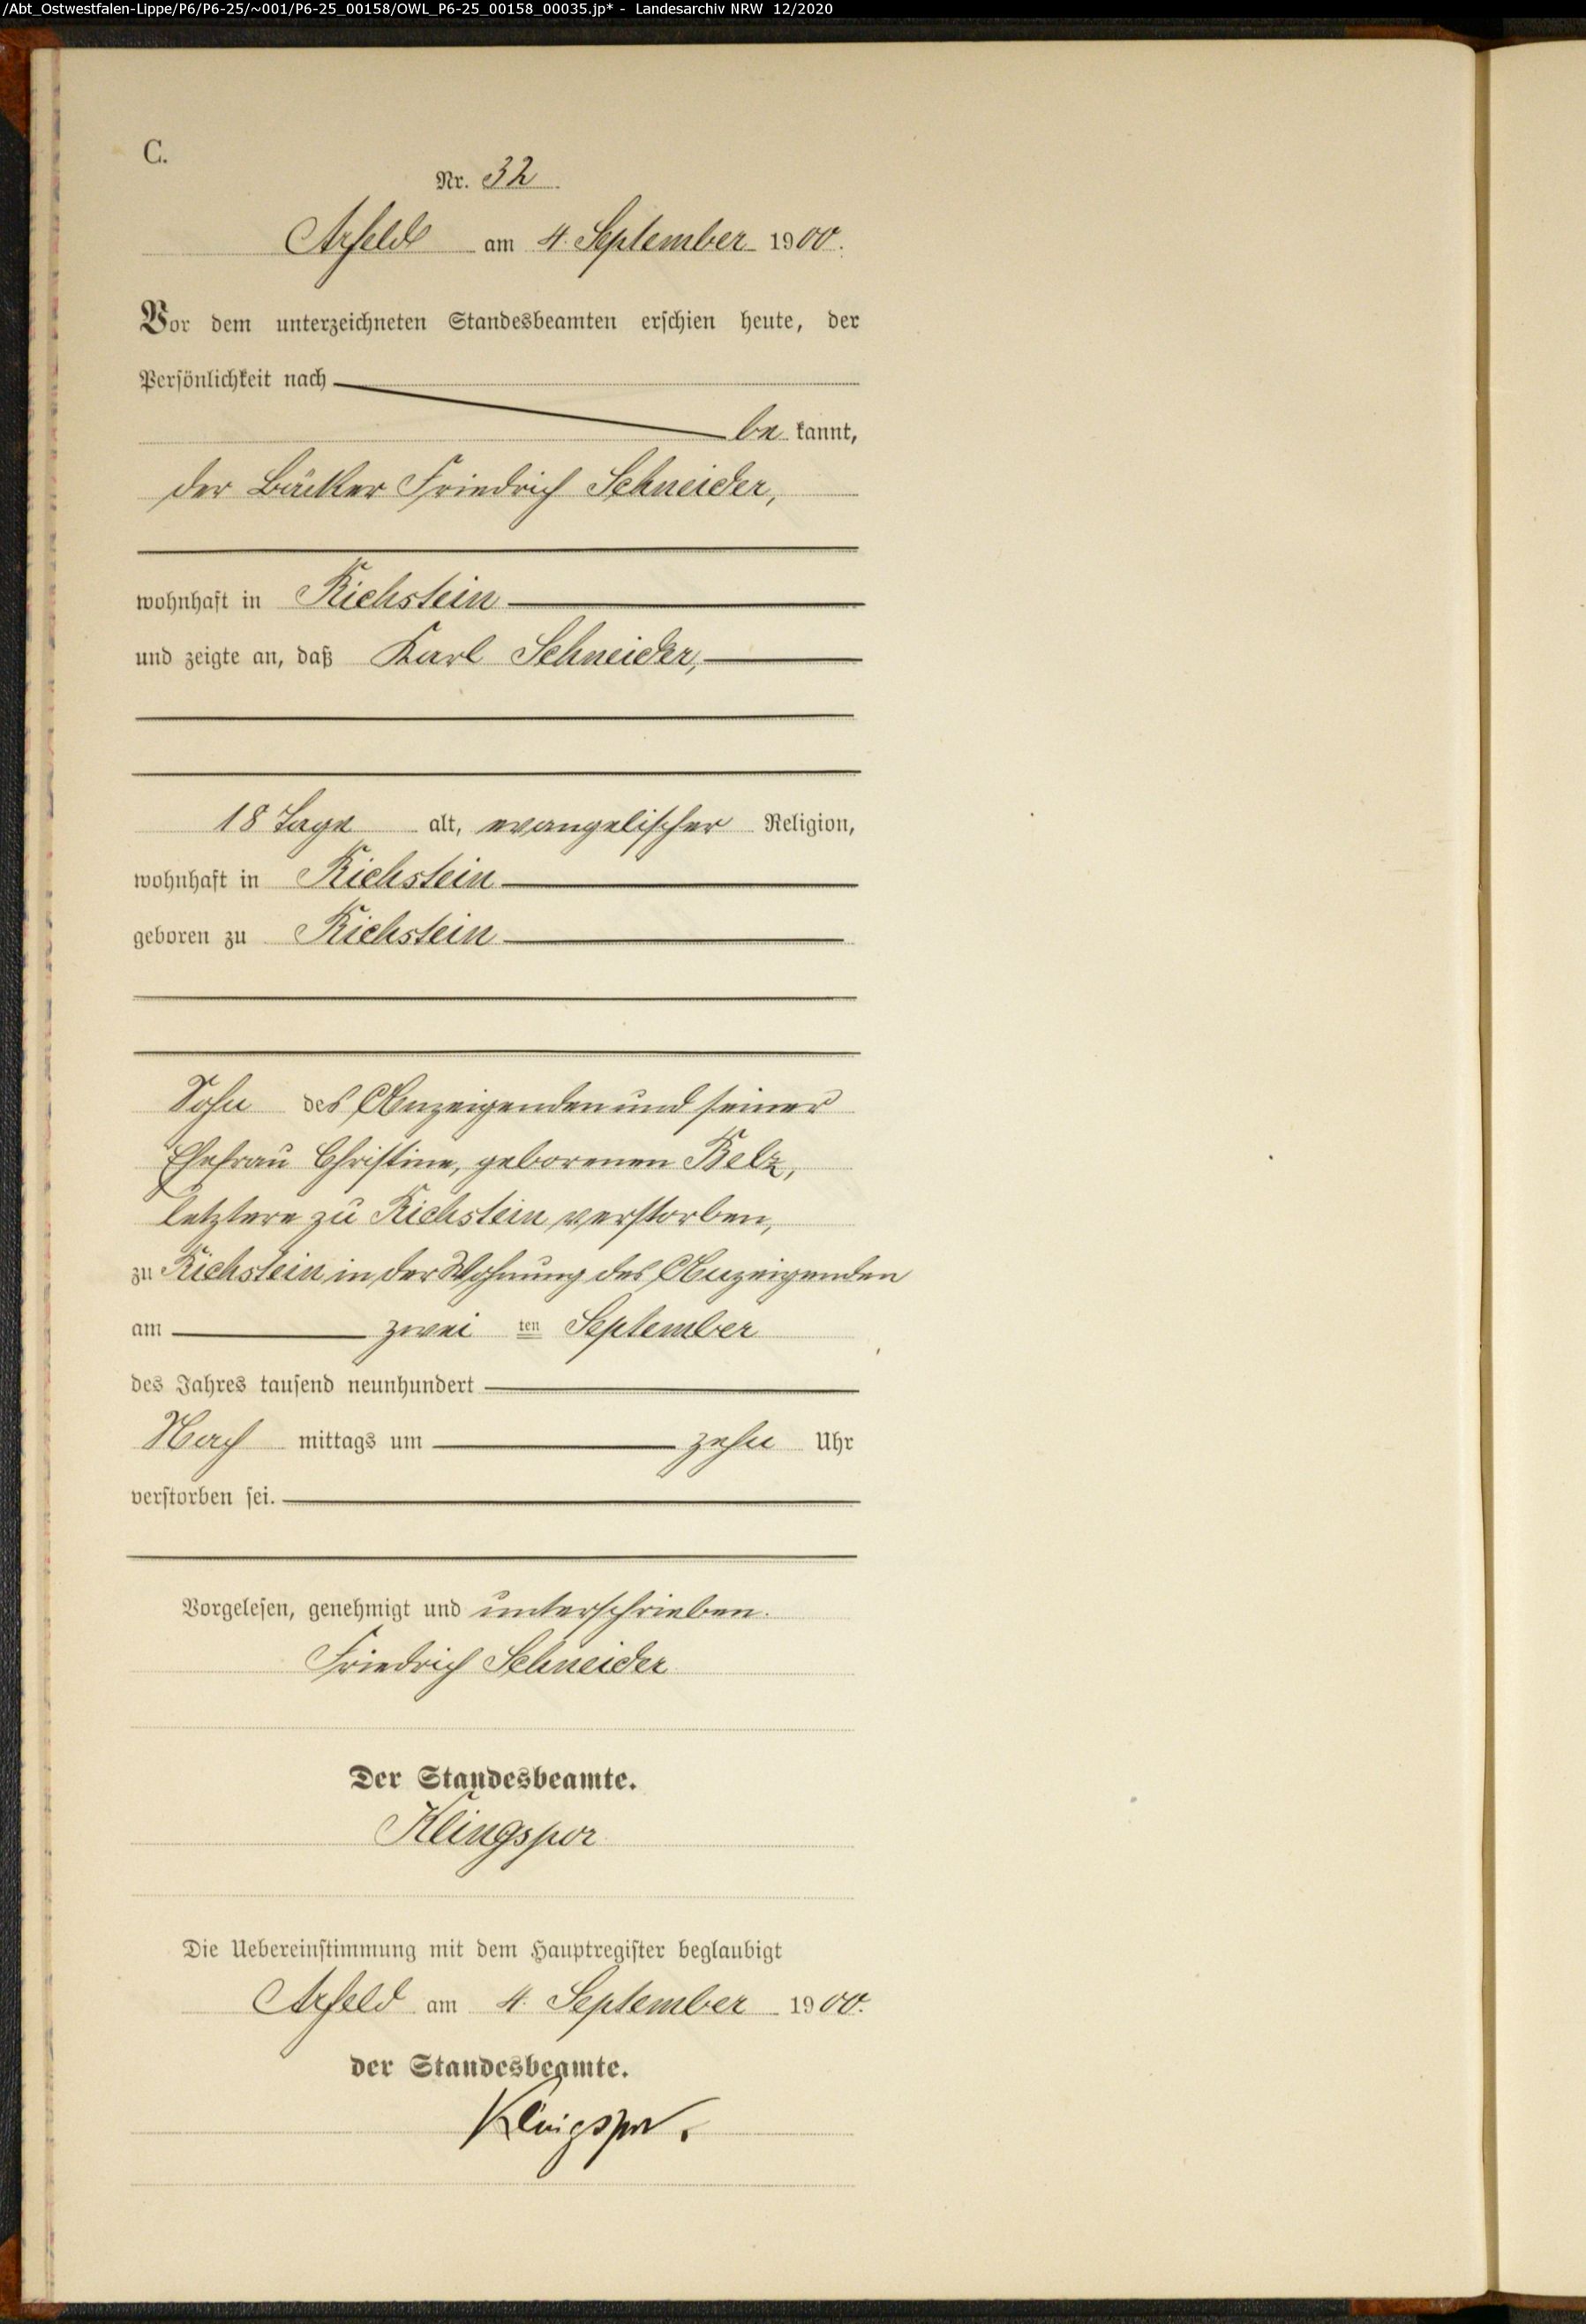 /Abt_Ostwestfalen-Lippe/P6/P6-25/~001/P6-25_00158/OWL_P6-25_00158_00035.jp* - Landesarchiv NRW 12/2020
C.
Nr. 32
Arfeld am 4. September 1900.
Vor dem unterzeichneten Standesbeamten erschien heute, der
Persönlichkeit nach
be kannt,
der Bäcker Friedrich Schneider,
wohnhaft in Richstein
und zeigte an, daß Karl Schneider,
18 Tage alt, evangelischer Religion,
wohnhaft in Richstein
geboren zu Richstein
Sohn des Anzeigenden und seiner
Ehefrau Christine, geborenen Belz,
letztere zu Richstein verstorben,
zu Richstein in der Wohnung des Anzeigenden
am zwei ten September
des Jahres tausend neunhundert
Nach mittags um zehn Uhr
verstorben sei.
Vorgelesen, genehmigt und unterschrieben.
Friedrich Schneider
Der Standesbeamte.
Klingspor
Die Uebereinstimmung mit dem Hauptregister beglaubigt
Arfeld am 4. September 1900.
der Standesbeamte.
Klingspor.